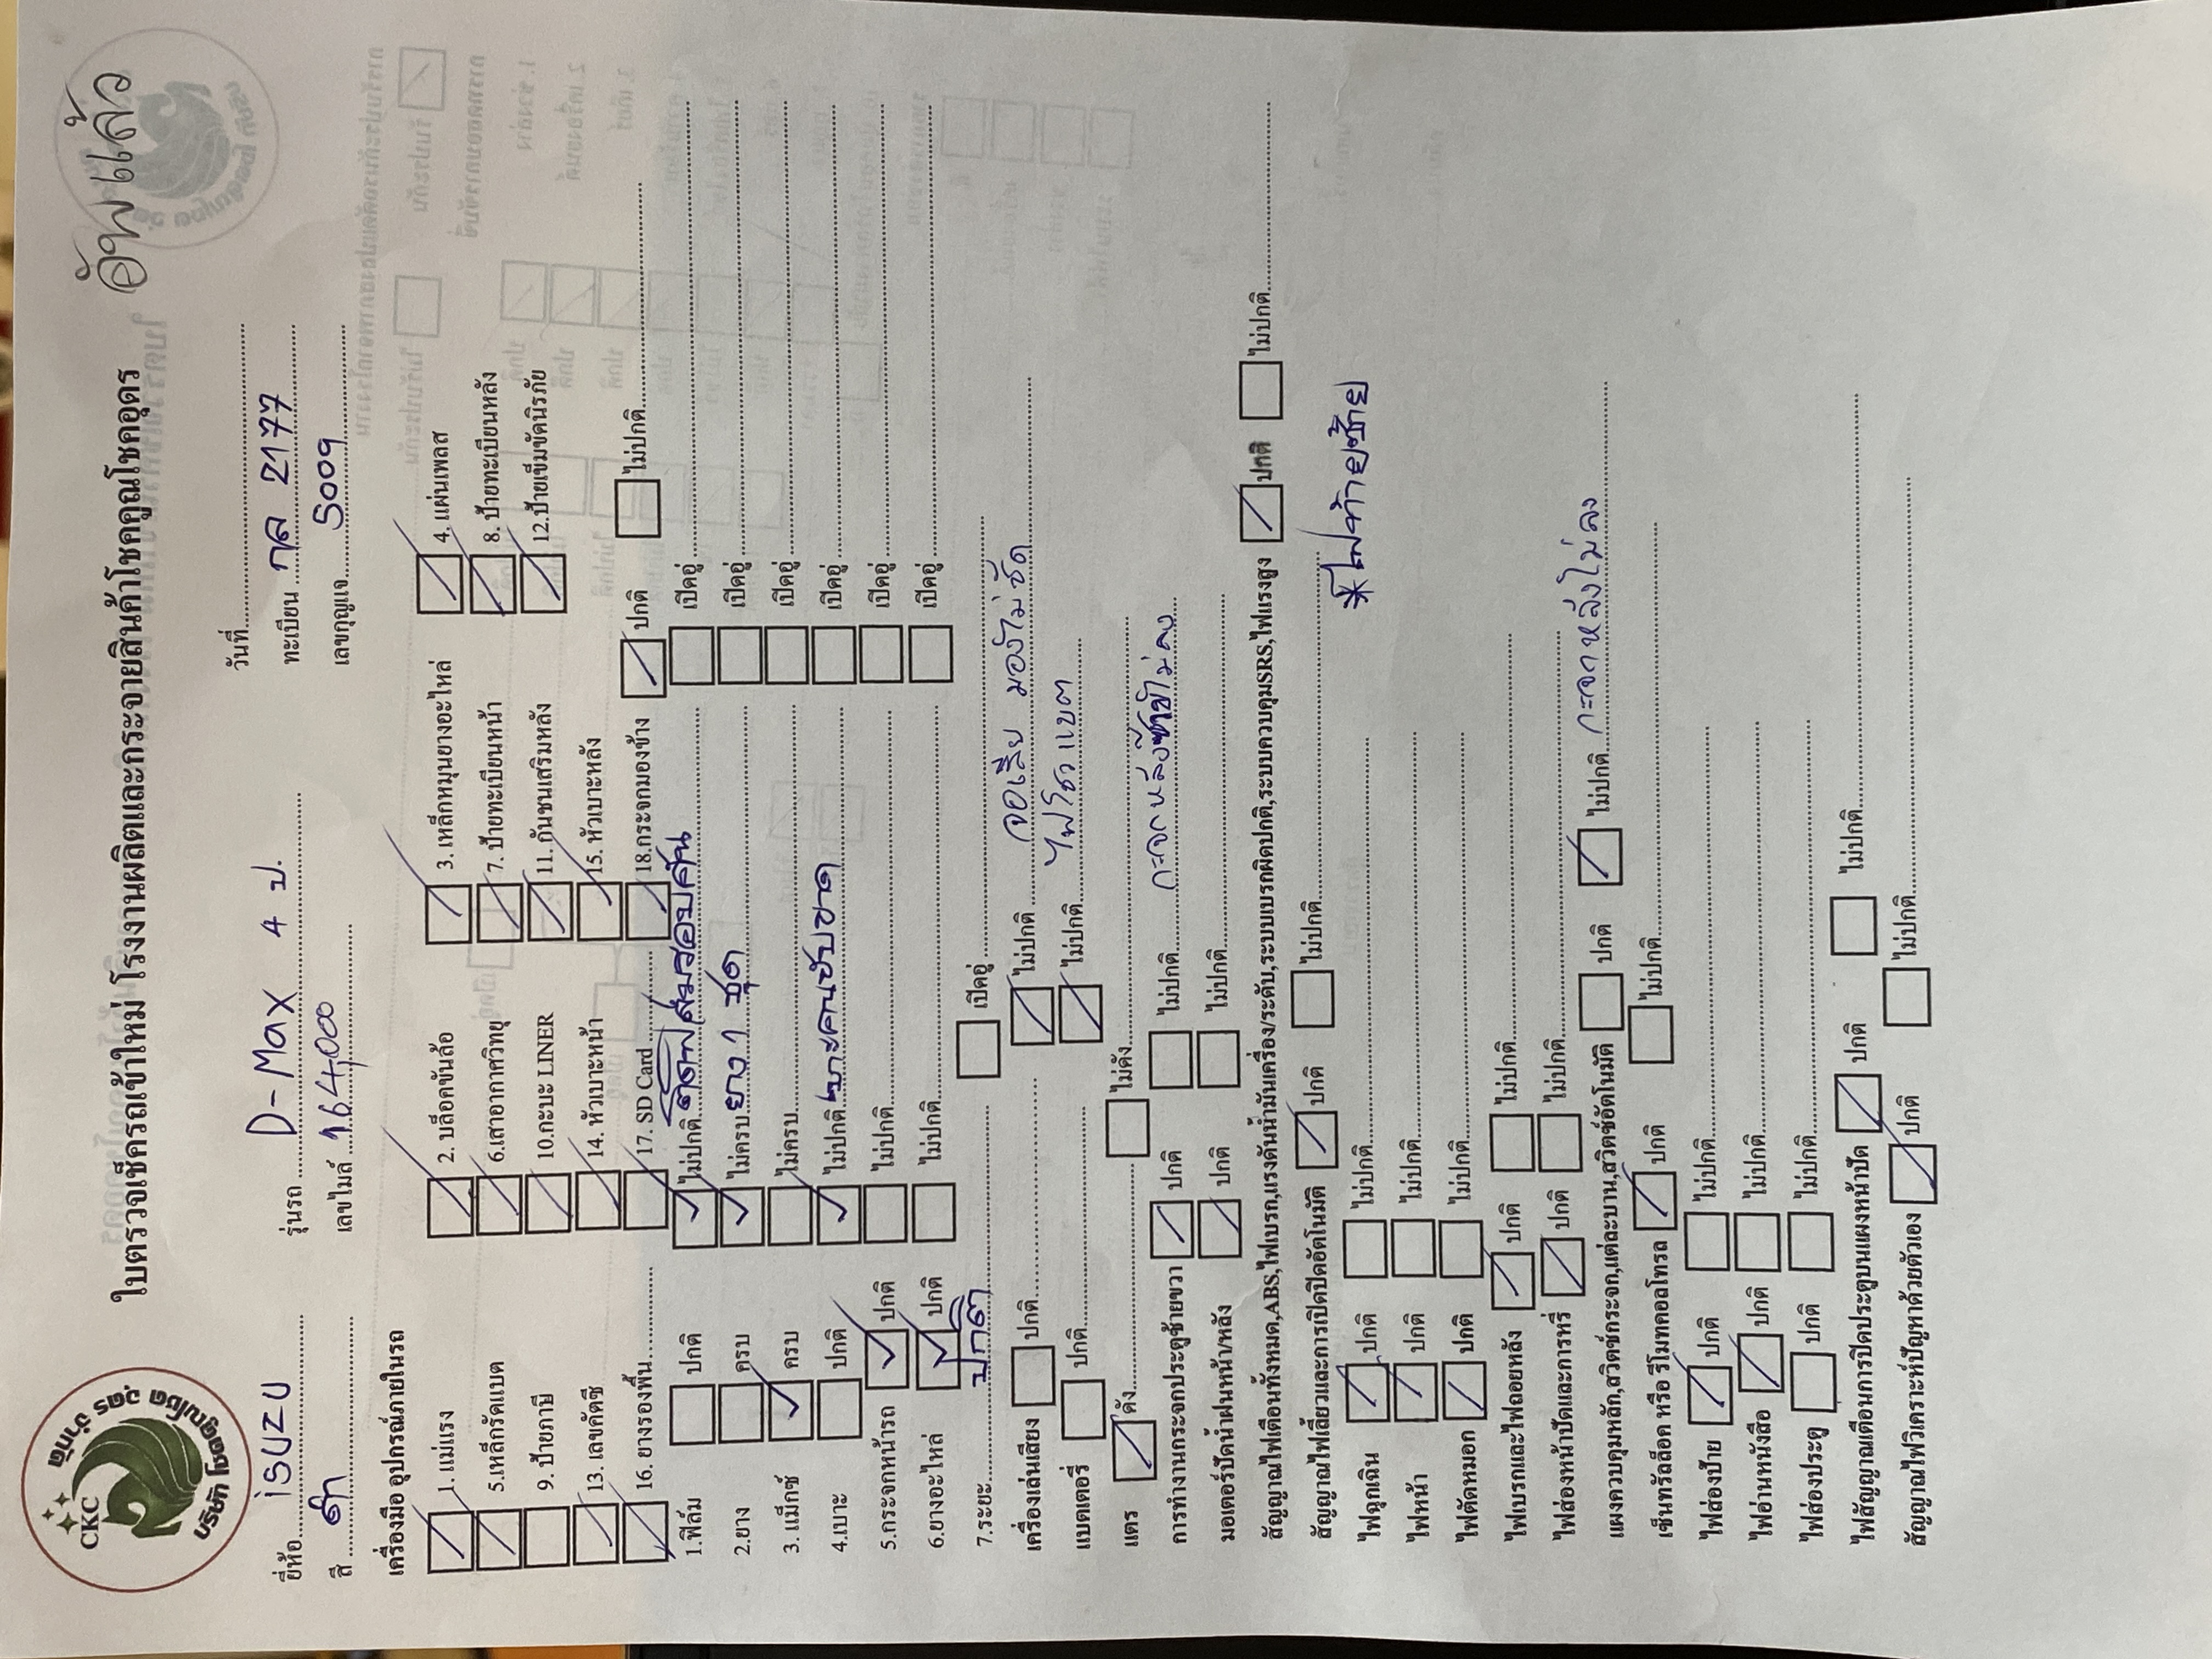 CKC
บริษัท โชคคูณโชค อุดร จำกัด
อัพแล้ว
ใบตรวจเช็ครถเข้าใหม่ โรงงานผลิตและกระจายสินค้าโชคคูณโชคอุดร
วันที่
ยี่ห้อ isuzu รุ่นรถ D-Max 4 ป. ทะเบียน กล 2177
สี ดำ เลขไมล์ 164,000 เลขกุญแจ 5009
เครื่องมือ อุปกรณ์ภายในรถ
1. แม่แรง 2. บล็อคขันล้อ 3. เหล็กหมุนยางอะไหล่ 4. แผ่นเพลส
5.เหล็กรัคแบต 6.เสาอากาศวิทยุ 7. ป้ายทะเบียนหน้า 8. ป้ายทะเบียนหลัง
9. ป้ายภาษี 10.กะบะ LINER 11. กันชนเสริมหลัง 12.ป้ายเข็มขัดนิรภัย
13. เลขคัตซี 14. หัวเบาะหน้า 15. หัวเบาะหลัง
16. ยางรองพื้น 17. SD Card 18.กระจกมองข้าง ปกติ ไม่ปกติ
1.ฟิล์ม ปกติ ไม่ปกติ เปิดอู่
2.ยาง ครบ ไม่ครบ ยาง 1 ชุด เปิดอู่
3. แม็กซ์ ครบ ไม่ครบ เปิดอู่
4.เบาะ ปกติ ไม่ปกติ เบาะคนขับขาด เปิดอู่
5.กระจกหน้ารถ ปกติ ไม่ปกติ เปิดอู่
6.ยางอะไหล่ ปกติ ไม่ปกติ เปิดอู่
7.ระยะ ปกติ เปิดอู่
เครื่องเล่นเสียง ปกติ ไม่ปกติ จอเสีย มองไม่ชัด
แบตเตอรี่ ปกติ ไม่ปกติ ไฟโชว์แบต
แตร ดัง ไม่ดัง
การทำงานกระจกประตูซ้ายขวา ปกติ ไม่ปกติ กะจกหลังซ้ายไม่ลง
มอเตอร์ปัดน้ำฝนหน้า/หลัง ปกติ ไม่ปกติ
สัญญาณไฟเตือนทั้งหมด,ABS,ไฟเบรก,แรงดันน้ำมันเครื่อง/ระดับ,ระบบเบรกผิดปกติ,ระบบควบคุมSRS,ไฟแรงสูง ปกติ ไม่ปกติ
สัญญาณไฟเลี้ยวและการเปิดปิดอัตโนมัติ ปกติ ไม่ปกติ
ไฟฉุกเฉิน ปกติ ไม่ปกติ *ไฟท้ายซ้าย
ไฟหน้า ปกติ ไม่ปกติ
ไฟตัดหมอก ปกติ ไม่ปกติ
ไฟเบรกและไฟถอยหลัง ปกติ ไม่ปกติ
ไฟส่องหน้าปัดและการหรี่ ปกติ ไม่ปกติ
แผงควบคุมหลัก,สวิตช์กระจก,แต่ละบาน,สวิตช์อัตโนมัติ ปกติ ไม่ปกติ กะจกหลังไม่ลง
เซ็นทรัลล็อค หรือ รีโมทคอลโทรล ปกติ ไม่ปกติ
ไฟส่องป้าย ปกติ ไม่ปกติ
ไฟอ่านหนังสือ ปกติ ไม่ปกติ
ไฟส่องประตู ปกติ ไม่ปกติ
ไฟสัญญาณเตือนการปิดประตูบนแผงหน้าปัด ปกติ ไม่ปกติ
สัญญาณไฟวิเคราะห์ปัญหาด้วยตัวเอง ปกติ ไม่ปกติ